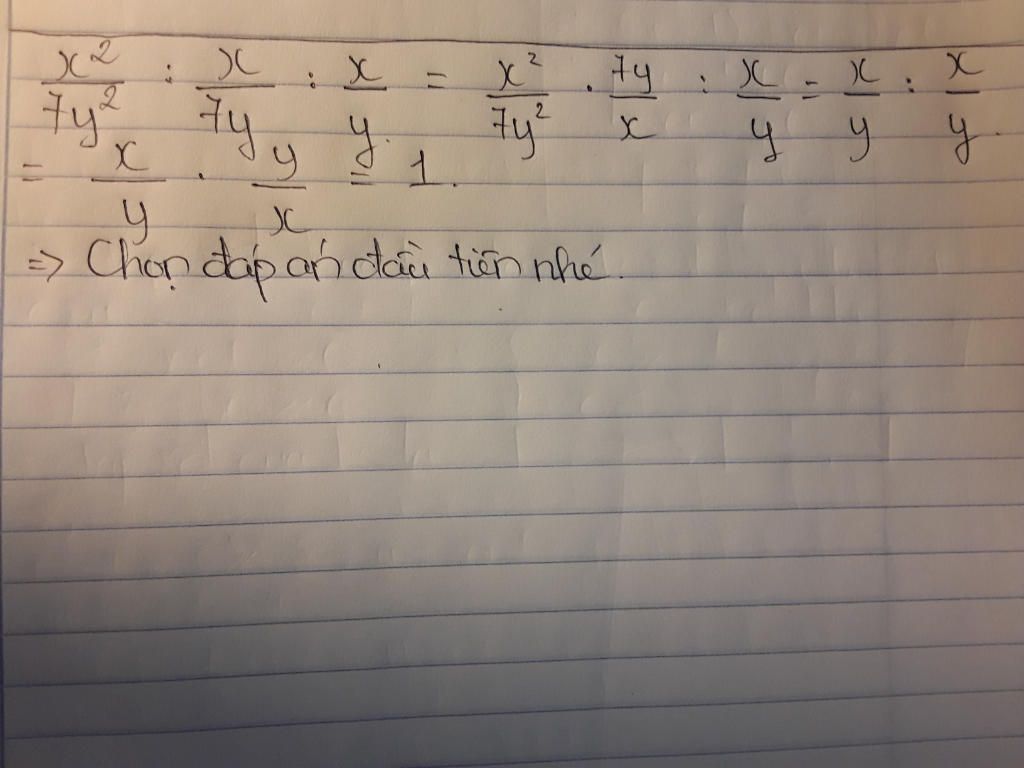 x²/7y² : x/7y : x/y = x²/7y² . 7y/x : x/y = x/y : x/y.
= x/y . y/x = 1.
=> Chọn đáp án đầu tiên nhé.